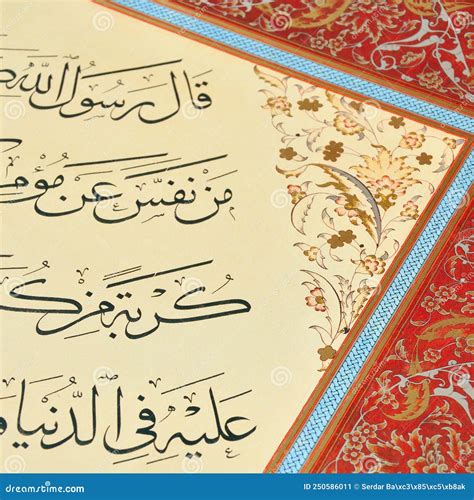 قَالَ رَسُولُ اللّٰه
مَنْ نَفَّسَ عَنْ مُؤمـ
كُرْبَةً مِنْ كُـ
عَلَيْهِ فِي الدُّنْيَا و
dreamstime.com
ID 250586011 © Serdar Ba\xc3\x85\xc5\xb8ak